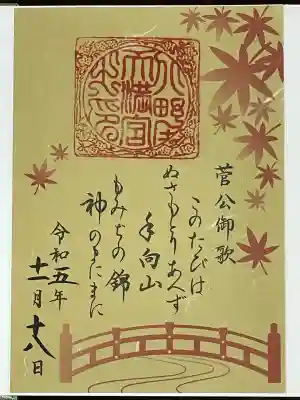 北野天満宮之印
菅公御歌
このたびは
ぬさもとりあへず
手向山
もみぢの錦
神のまにまに
令和五年
十一月十八日